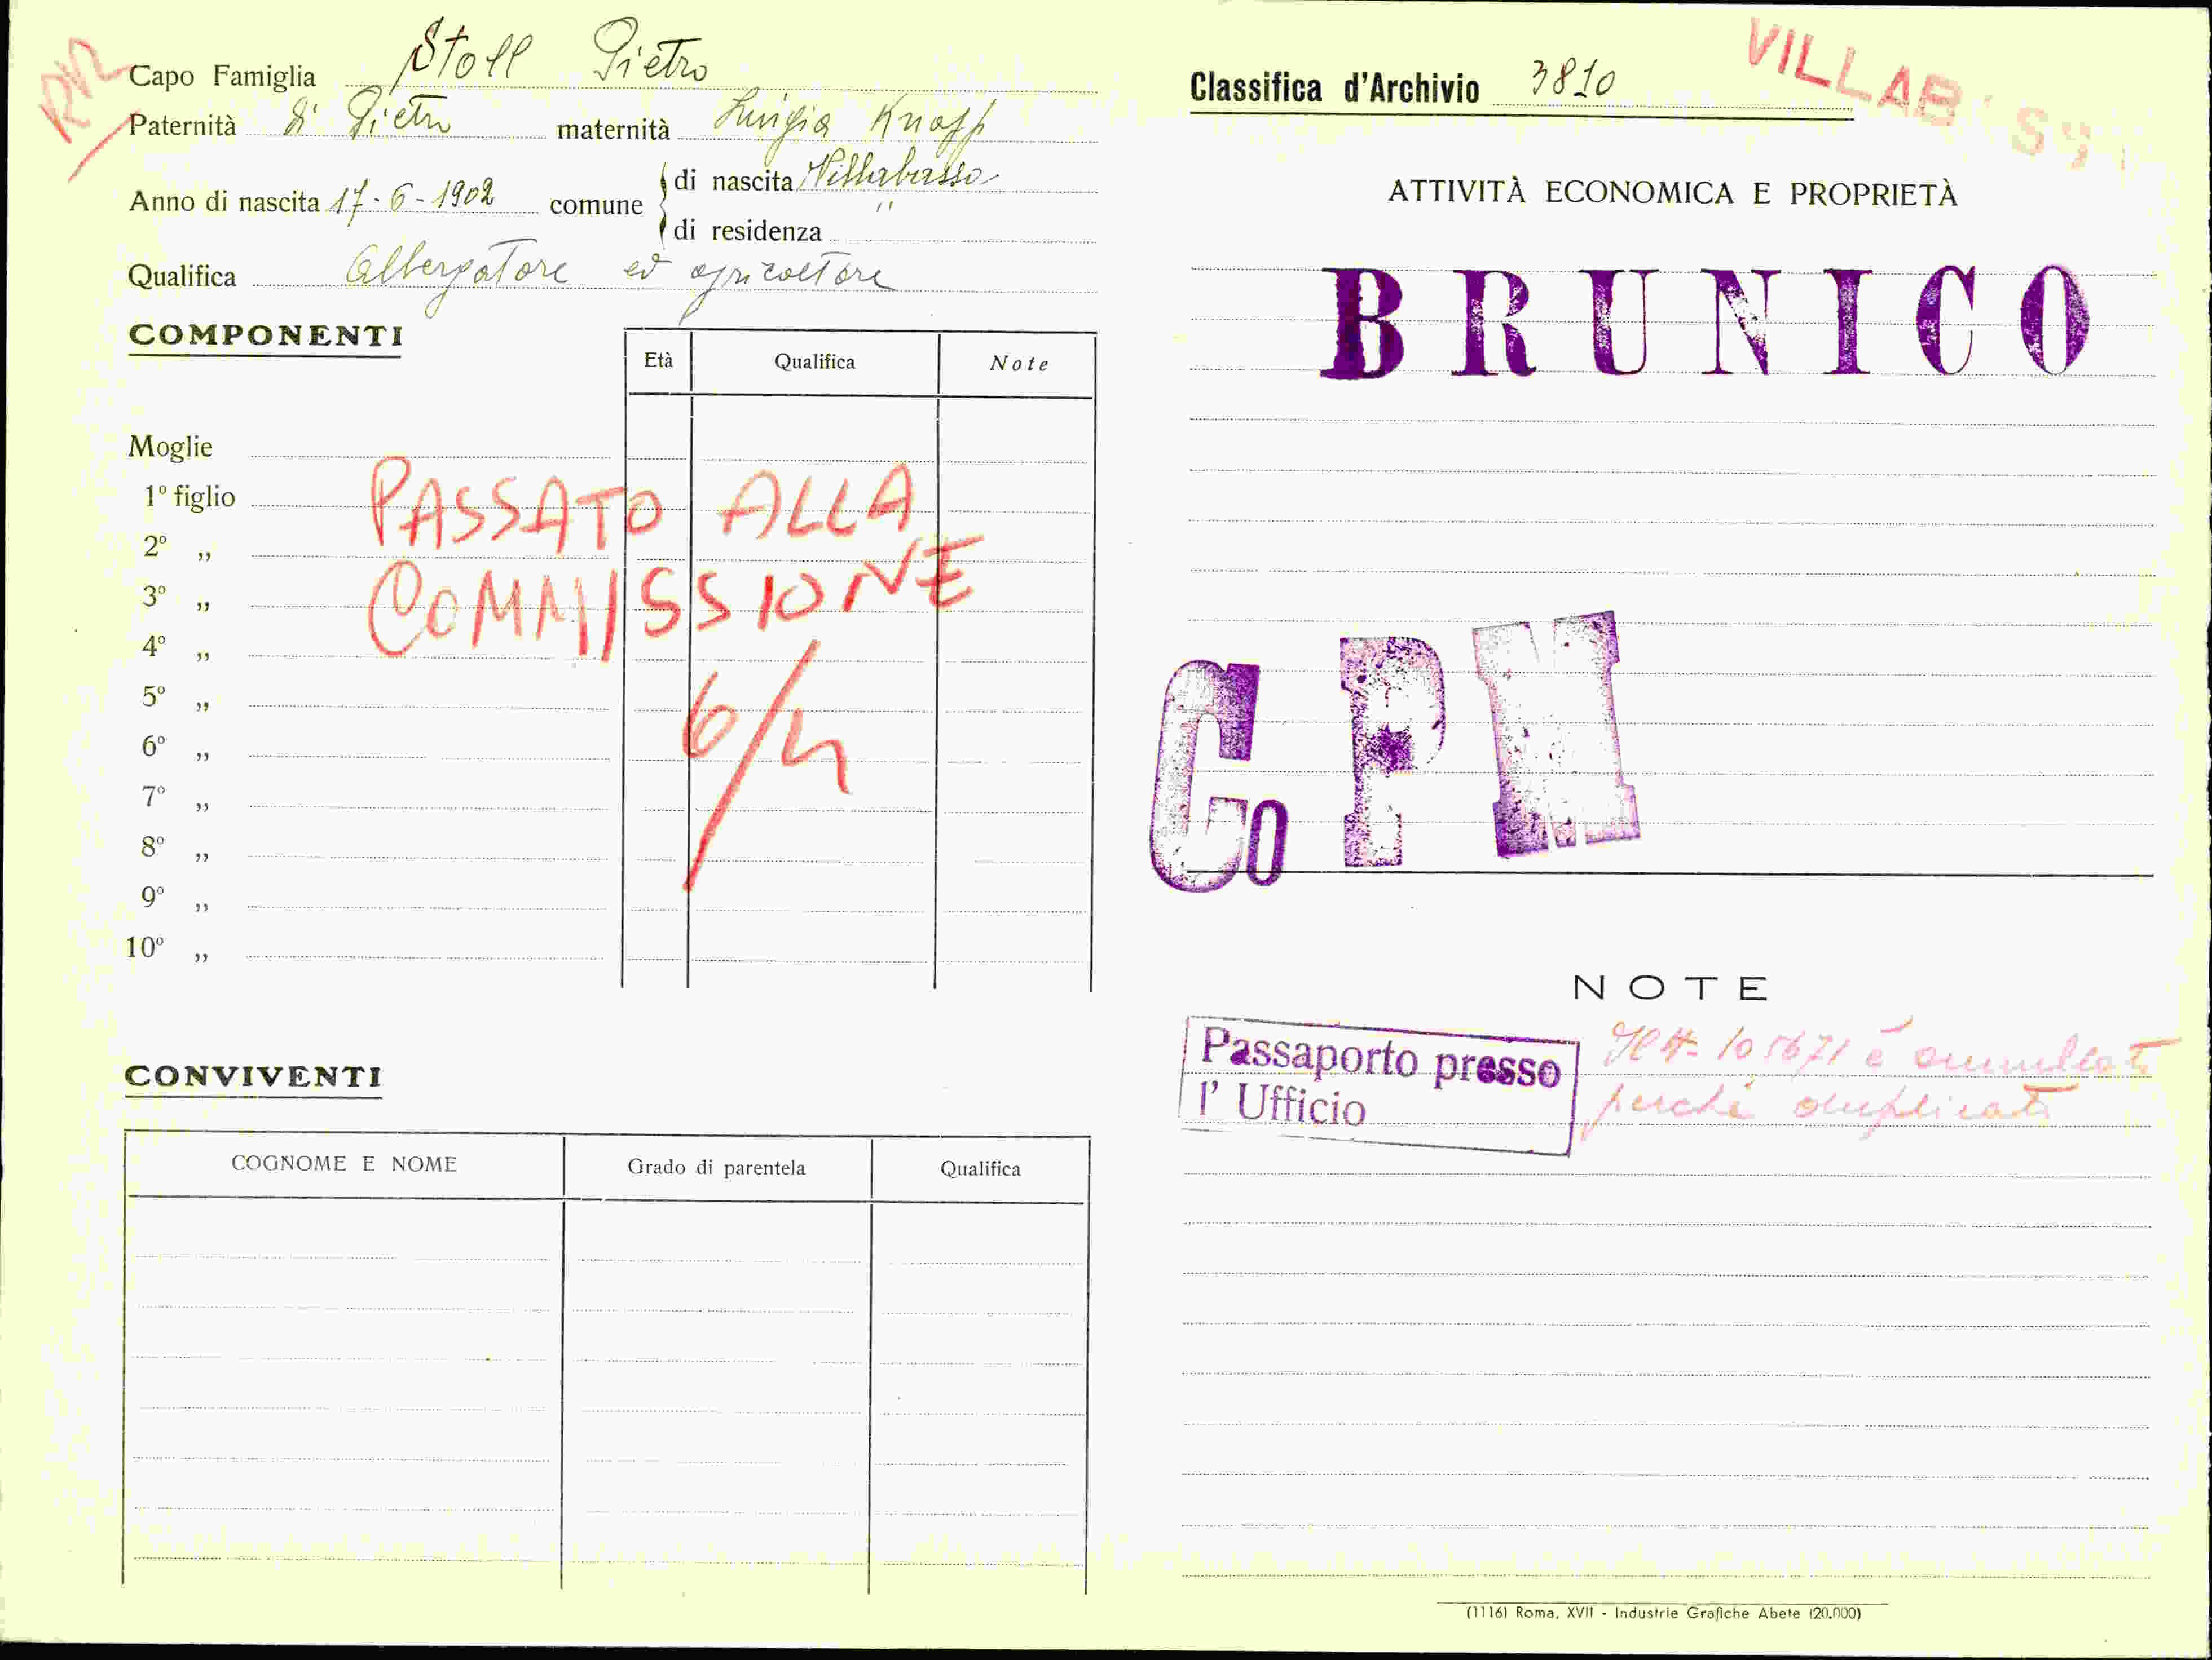 Capo Famiglia Stoll Pietro
Paternità di Pietro maternità Luigia Knapp
Anno di nascita 17-6-1902 comune di nascita Villabassa
di residenza "
Qualifica Albergatore ed agricoltore
COMPONENTI
Età Qualifica Note
Moglie
1º figlio
2º "
3º "
4º "
5º "
6º "
7º "
8º "
9º "
10º "
PASSATO ALLA
COMMISSIONE
CONVIVENTI
COGNOME E NOME Grado di parentela Qualifica
Classifica d'Archivio 3810
VILLAB
ATTIVITÀ ECONOMICA E PROPRIETÀ
BRUNICO
Co PM
NOTE
Passaporto presso
l' Ufficio
105671 è annullato
perchè duplicato
(1116) Roma, XVII - Industrie Grafiche Abete (20.000)